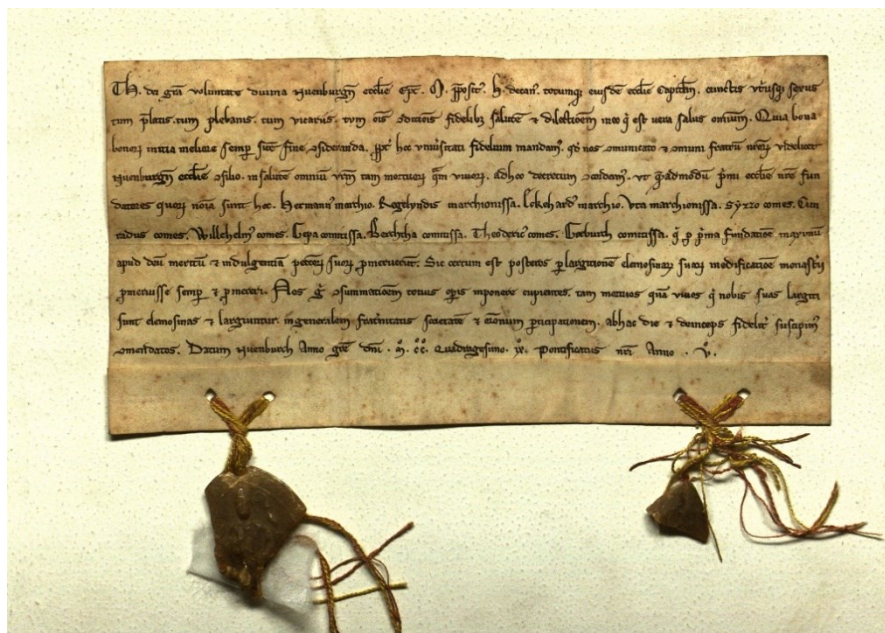 Th. dei grã voluntate diuina Nuenburgñ ecclie epc. ꝓposit'. h. decan'. totumq; eiusdẽ ecclie Capitlm. cunctis vtriusq; sexus
tum p̃latis. tum plebanis. tum vicariis. tum fidelib; salutẽ & dilectionem in eo q̃ est uera salus omniũ. Quia bona
bonoꝝ initia meliore semper fine ꝯsideranda. hoc vniu̾sitati fidelium mandam'. nos ꝯmunicato & omni fratrũ videlicet
Nuenburgñ ecclie ꝯsilio. in salutẽ omniũ tam mortuoꝝ q̃m viuoꝝ. ad hoc decretum vt p̃mi ecclie nr̃e fun
datores quoꝝ noĩa sunt hec. Hermann' marchio. Regelyndis marchionissa. Ekehard' marchio. Vta marchionissa. Syzzo comes. Cun
radus comes. Willehelm' comes. Gepa comitissa. Berchtha comitissa. Theoderic' comes. Gerburch comitissa. q̃ ꝓ p̃ma fundatiõe maximũ
apud deũ meritũ & indulgentiã pctõꝝ suoꝝ ꝓmeruerũt. Sic certum est posteros ꝑ largitionẽ elemosinaꝝ suaꝝ in edificatiõe monastĩi
ꝓmeruisse semper & ꝓmereri. Nos ꝯsummationem totius oꝑis inponere cupientes. tam mortuos quã viuos q̃ nobis suas largiti
sunt elemosinas & largiuntur. in generalem frat̾nitatis societatẽ & or̃onum ꝑticipationem. ab hac die & deinceps fidelit̾ suscipim'
ꝯmendatos. Datum Nuenburch Anno grẽ dñi. M. CC. Quadragesimo. IX. Pontificatus nr̃i Anno. V.